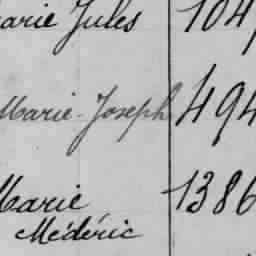 arie Jules 104
Marie-Joseph 494
Marie 1386
Médéric